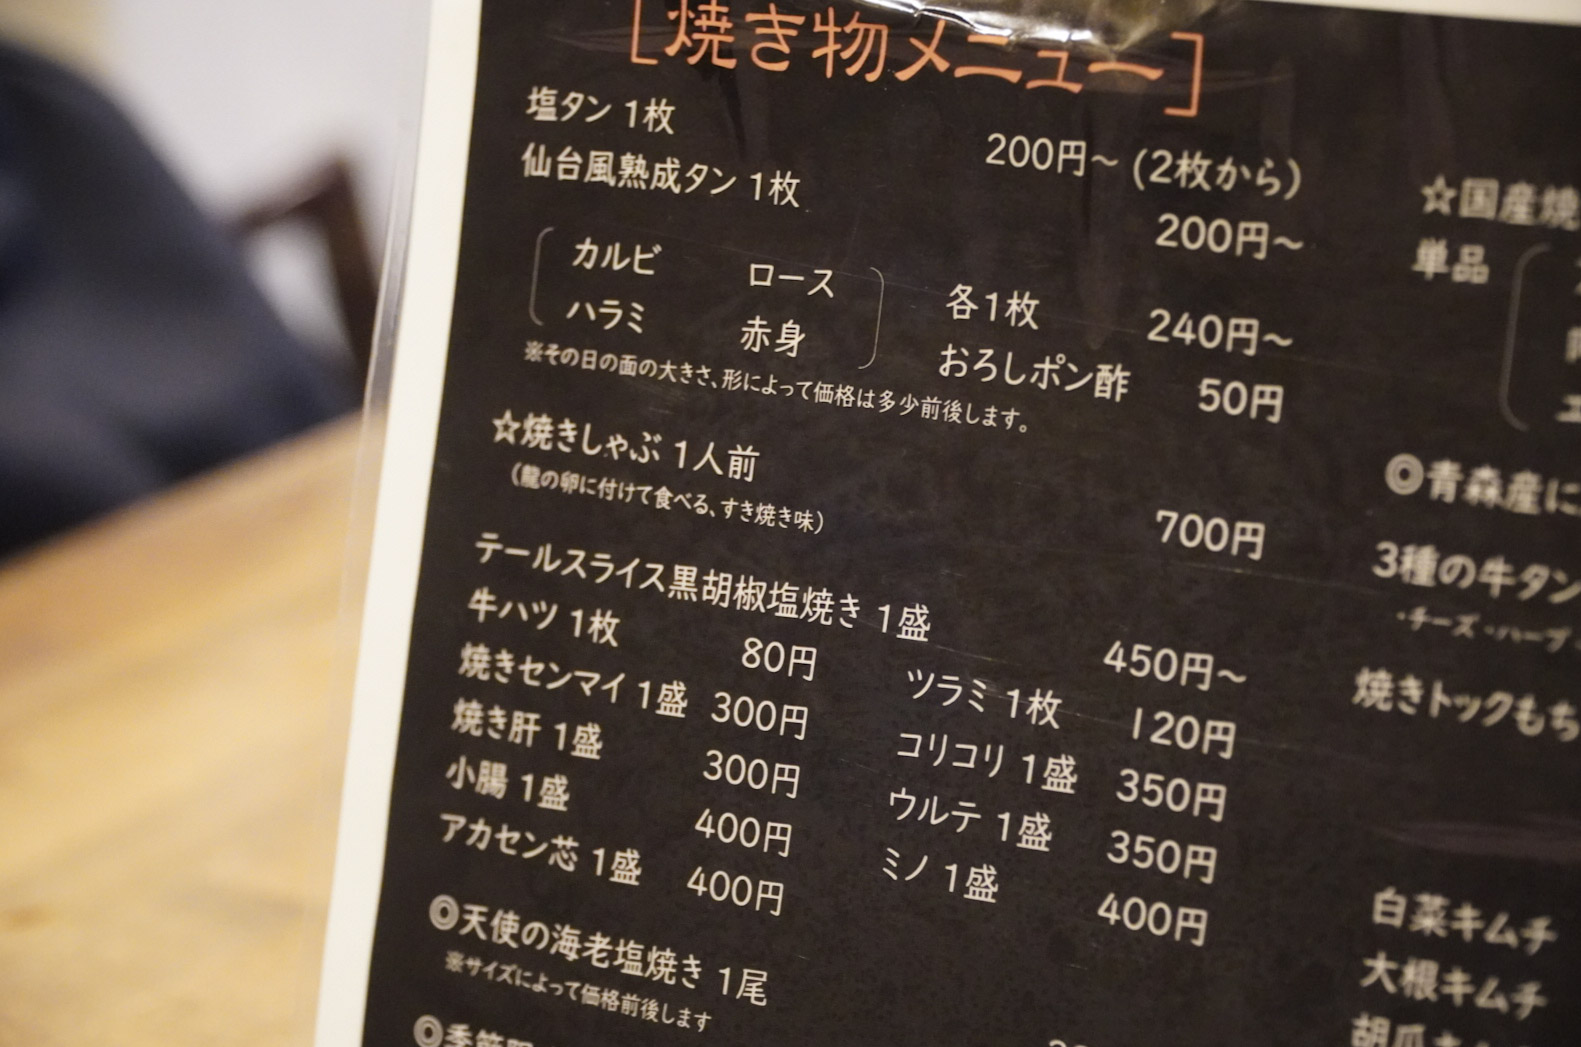 [焼き物メニュー]
塩タン 1枚 200円～ (2枚から)
仙台風熟成タン 1枚 200円～
カルビ ロース 各1枚 240円～
ハラミ 赤身 おろしポン酢 50円
※その日の面の大きさ、形によって価格は多少前後します。
☆焼きしゃぶ 1人前 700円
(龍の卵に付けて食べる、すき焼き味)
テールスライス黒胡椒塩焼き 1盛 450円～
牛ハツ 1枚 80円 ツラミ 1枚 120円
焼きセンマイ 1盛 300円 コリコリ 1盛 350円
焼き肝 1盛 300円 ウルテ 1盛 350円
小腸 1盛 400円 ミノ 1盛 400円
アカセン芯 1盛 400円
◎天使の海老塩焼き 1尾
※サイズによって価格前後します
◎季節限
☆国産焼
単品
◎青森産に
3種の牛タン
・チーズ・ハーブ
焼きトックもち
白菜キムチ
大根キムチ
胡瓜キムチ